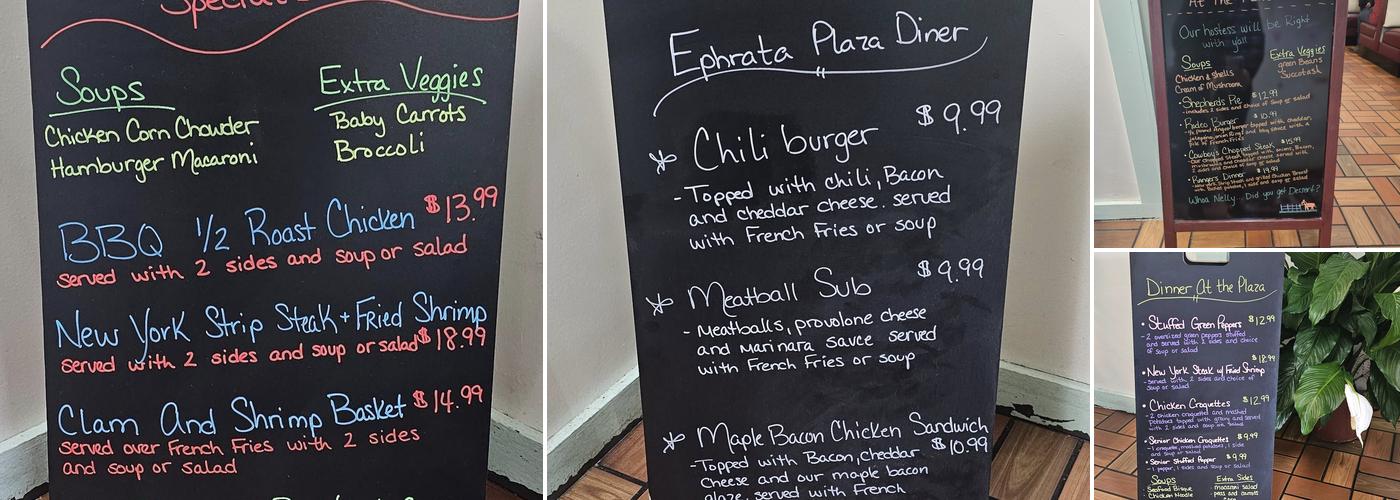 Specials
Soups
Chicken Corn Chowder
Hamburger Macaroni
Extra Veggies
Baby Carrots
Broccoli
BBQ ½ Roast Chicken $13.99
served with 2 sides and soup or salad
New York Strip Steak + Fried Shrimp
served with 2 sides and soup or salad $18.99
Clam And Shrimp Basket $14.99
served over French Fries with 2 sides
and soup or salad
Ephrata Plaza Diner
$9.99
Chili burger
- Topped with chili, Bacon
and cheddar cheese. served
with French Fries or soup
$9.99
Meatball Sub
- Meatballs, provolone cheese
and marinara sauce served
with French Fries or soup
Maple Bacon Chicken Sandwich
$10.99
- Topped with Bacon, cheddar
Cheese and our maple bacon
glaze. served with French
At The
Our hostess will be Right
with y'all
Soups
Chicken & Shells
Cream of Mushroom
Extra Veggies
green Beans
Succotash
• Shepherds Pie $12.99
- includes 2 sides and choice of soup or salad
• Rodeo Burger $10.99
• Cowboy's Chopped Steak $15.99
2 sides and choice of soup or salad
• Rangers Dinner $19.99
Whoa Nelly... Did you get Dessert?
Dinner At the Plaza
• Stuffed Green Peppers $12.99
- 2 oversized green peppers stuffed
and served with 2 sides and choice
of soup or salad
$18.99
• New York Steak w/ Fried Shrimp
- served with 2 sides and choice of
soup or salad
• Chicken Croquettes $12.99
- 2 chicken croquettes and mashed
potatoes topped with gravy and served
with 2 sides and soup or salad
• Senior Chicken Croquettes $9.99
- 1 croquette, mashed potatoes, 1 side
and soup or salad
• Senior Stuffed Pepper $9.99
- 1 pepper, 1 sides and soup or salad
Soups
Seafood Bisque
Chicken Noodle
Extra Sides
macaroni salad
peas and carrots